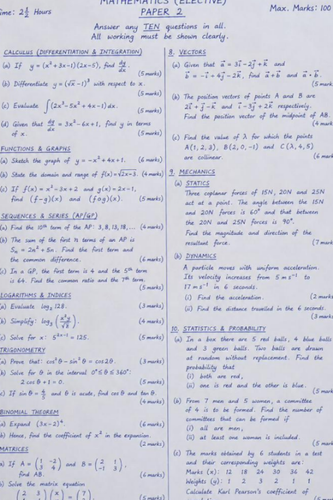 MATHEMATICS (ELECTIVE)
PAPER 2
Time: 2½ Hours
Max. Marks: 100
Answer any TEN questions in all.
All working must be shown clearly.
CALCULUS (DIFFERENTIATION & INTEGRATION)
(a) If y = (x²+3x-1)(2x-5), find dy/dx.
(5 marks)
(b) Differentiate y = (√x - 1)³ with respect to x.
(5 marks)
(c) Evaluate ∫(2x³-5x²+4x-1)dx.
(5 marks)
(d) Given that dy/dx = 3x²-6x+1, find y in terms
of x.
(5 marks)
FUNCTIONS & GRAPHS
(a) Sketch the graph of y = -x²+4x+1. (6 marks)
(b) State the domain and range of f(x)=√2x-3. (4 marks)
(c) If f(x) = x²-3x+2 and g(x)=2x-1,
find (f-g)(x) and (fog)(x). (5 marks)
SEQUENCES & SERIES (AP/GP)
(a) Find the 10th term of the AP: 3, 8, 13, 18, ... (4 marks)
(b) The sum of the first n terms of an AP is
Sn = 2n²+5n. Find the first term and
the common difference. (6 marks)
(c) In a GP, the first term is 4 and the 5th term
is 64. Find the common ratio and the 7th term.
(5 marks)
LOGARITHMS & INDICES
(a) Evaluate log₅ 125. (3 marks)
(b) Simplify: log₃ (4 marks)
(c) Solve for x: = 125. (5 marks)
TRIGONOMETRY
(a) Prove that: cos²θ - sin²θ = cos2θ. (3 marks)
(b) Solve for θ in the interval 0°≤θ≤360°:
2cosθ + 1 = 0. (5 marks)
(c) If sinθ = and θ is acute, find cosθ and tanθ.
(4 marks)
BINOMIAL THEOREM
(a) Expand (3x-2)⁴. (6 marks)
(b) Hence, find the coefficient of x² in the expansion
(2 marks)
MATRICES
(a) If A = and B =
find AB. (6 marks)
Solve the matrix equation
8. VECTORS
(a) Given that a = 3i-2j+k and
b = -i+4j-2k, find a+b and a·b.
(5 marks)
(b) The position vectors of points A and B are
2i+j-k and i-3j+2k respectively.
Find the position vector of the midpoint of AB.
(4 marks)
(c) Find the value of λ for which the points
A(1,2,3), B(2,0,-1) and C(λ,4,5)
are collinear (6 marks)
9. MECHANICS
(a) STATICS
Three coplanar forces of 15N, 20N and 25N
act at a point. The angle between the 15N
and 20N forces is 60° and that between
the 20N and 25N forces is 90°.
Find the magnitude and direction of the
resultant force. (7 marks)
(b) DYNAMICS
A particle moves with uniform acceleration.
Its velocity increases from 5 m s⁻¹ to
17 m s⁻¹ in 6 seconds.
(i) Find the acceleration. (2 marks)
(ii) Find the distance travelled in the 6 seconds.
(3 marks)
10. STATISTICS & PROBABILITY
(a) In a box there are 5 red balls, 4 blue balls
and 3 green balls. Two balls are drawn
at random without replacement. Find the
probability that
(i) both are red,
(ii) one is red and the other is blue.
(5 marks)
(b) From 7 men and 5 women, a committee
of 4 is to be formed. Find the number of
committees that can be formed if
(i) all are men,
(ii) at least one woman is included.
(5 marks)
(c) The marks obtained by 6 students in a test
and their corresponding weights are:
Marks (x): 12 18 24 30 36 42
Weights (y): 1 2 3 2 1 1
Calculate Karl Pearson's coefficient of